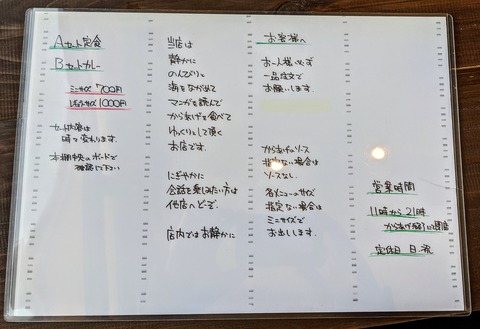 Aセット定食
Bセットカレー
ミニサイズ 700円
レギュラーサイズ 1000円
セット内容は
時々変わります。
本棚中央のボードで
確認して下さい
当店は
静かに
のんびりと
海をながめて
マンガを読んで
からあげを食べて
ゆっくりして頂く
お店です。
にぎやかに
会話を楽しみたい方は
他店へどうぞ。
店内ではお静かに
お客様へ
お一人様必ず
一品注文で
お願いします。
からあげのソース
指定ない場合は
ソースなし。
各メニューのサイズ
指定ない場合は
ミニサイズで
お出しします。
営業時間
11時から21時
からあげ売り切れ次第閉店
定休日 日. 祝